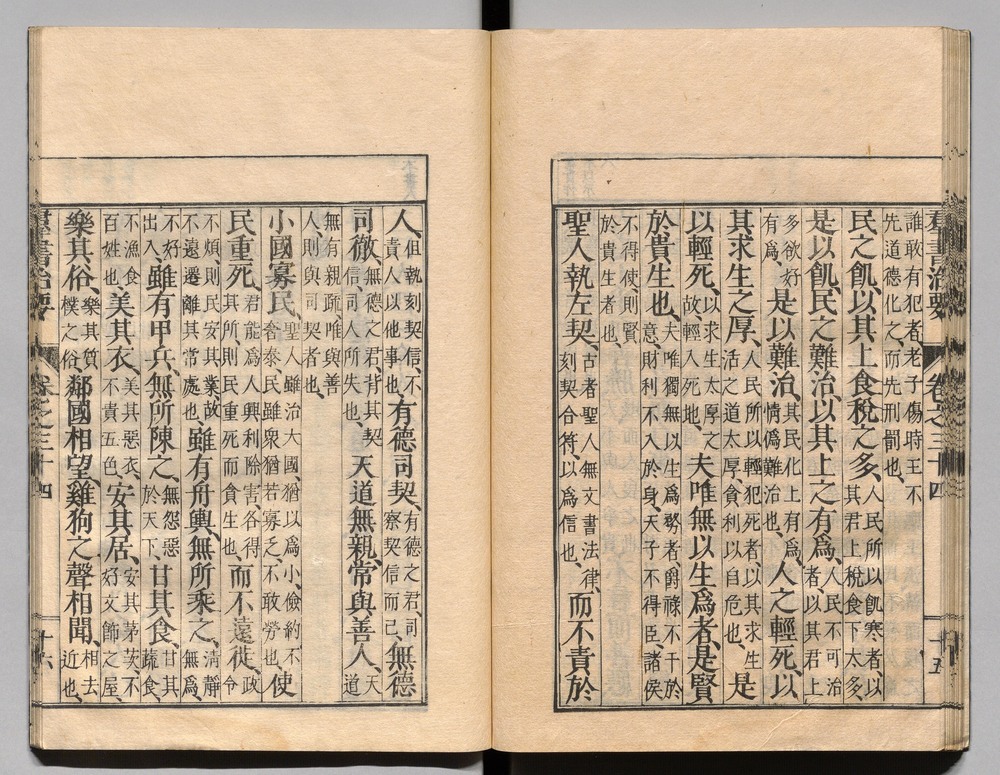 羣書治要 卷之三十四 十五
誰敢有犯者、老子傷時王不先道德化之、而先刑罰也、
民之飢、以其上食稅之多、人民所以飢寒者、以其君上稅食下太多、
是以飢、民之難治、以其上之有爲、人民不可治者、以其君上
多欲好有爲、是以難治、其民化上有爲、情僞難治也、人之輕死、以
其求生之厚、人民所以輕犯死者、以其求生活之道太厚、貪利以自危也、是
以輕死、以求生太厚之故、輕入死地、夫唯無以生爲者、是賢
於貴生也、夫唯獨無以生爲務者、爵祿不干於意、財利不入於身、天子不得臣、諸侯
不得使、則賢於貴生者也、
聖人執左契、古者聖人無文書法律、刻契合符、以爲信也、而不責於
人、但執刻契信、不責人以他事也、有德司契、有德之君、司察契信而已、無德
司徹、無德之君、背其契信、司人所失也、天道無親、常與善人、天道
無有親疏、唯與善人、則與司契者也、
小國寡民、聖人雖治大國、猶以爲小、儉約不奢泰、民雖衆、猶若寡乏、不敢勞也、使
民重死、君能爲人興利除害、各得其所、則民重死而貪生也、而不遠徙、政令
不煩、則民安其業、故不遠遷離其常處也、雖有舟輿、無所乘之、清靜無爲、
不好出入、雖有甲兵、無所陳之、無怨惡於天下、甘其食、甘其蔬食、
不漁食百姓也、美其衣、美其惡衣、不貴五色、安其居、安其茅茨、不好文飾之屋、
樂其俗、樂其質樸之俗、鄰國相望、雞狗之聲相聞、相去近也、
羣書治要 卷之三十四 十六